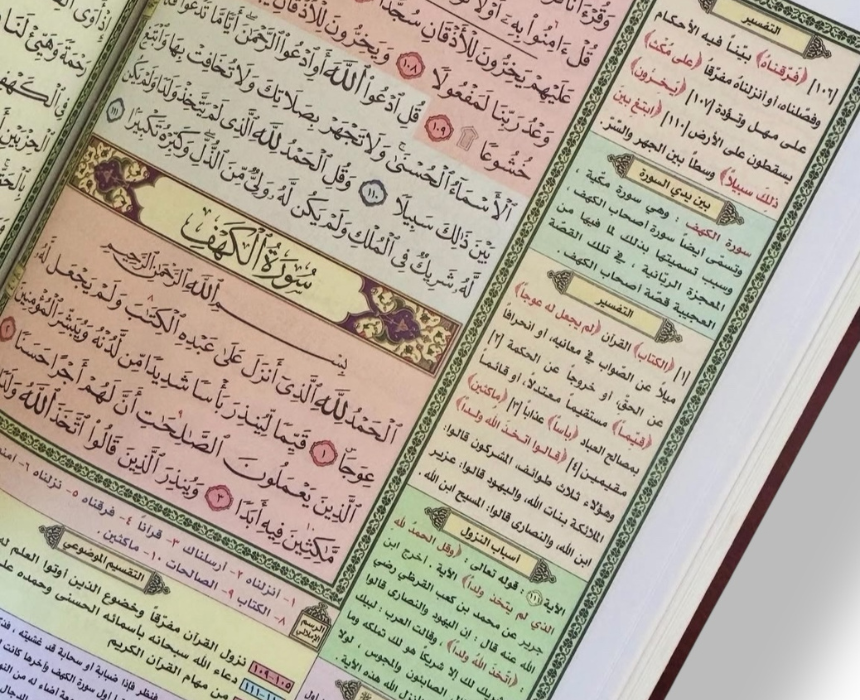 قُلْ ءَامِنُوا۟ بِهِۦٓ أَوْ لَا
عَلَيْهِمْ يَخِرُّونَ لِلْأَذْقَانِ سُجَّدًا
وَعْدُ رَبِّنَا لَمَفْعُولًا ١٠٨ وَيَخِرُّونَ لِلْأَذْقَانِ
خُشُوعًا ۩ ١٠٩ قُلِ ٱدْعُوا۟ ٱللَّهَ أَوِ ٱدْعُوا۟ ٱلرَّحْمَـٰنَ ۖ أَيًّا مَّا تَدْعُوا۟ فَلَهُ
ٱلْأَسْمَآءُ ٱلْحُسْنَىٰ ۚ وَلَا تَجْهَرْ بِصَلَاتِكَ وَلَا تُخَافِتْ بِهَا وَٱبْتَغِ
بَيْنَ ذَٰلِكَ سَبِيلًا ١١٠ وَقُلِ ٱلْحَمْدُ لِلَّهِ ٱلَّذِى لَمْ يَتَّخِذْ وَلَدًا وَلَمْ يَكُن
لَّهُۥ شَرِيكٌ فِى ٱلْمُلْكِ وَلَمْ يَكُن لَّهُۥ وَلِىٌّ مِّنَ ٱلذُّلِّ ۖ وَكَبِّرْهُ تَكْبِيرًۢا ١١١
سُورَةُ ٱلْكَهْفِ
بِسْمِ ٱللَّهِ ٱلرَّحْمَـٰنِ ٱلرَّحِيمِ
ٱلْحَمْدُ لِلَّهِ ٱلَّذِىٓ أَنزَلَ عَلَىٰ عَبْدِهِ ٱلْكِتَـٰبَ وَلَمْ يَجْعَل لَّهُۥ
عِوَجَا ١ قَيِّمًا لِّيُنذِرَ بَأْسًا شَدِيدًا مِّن لَّدُنْهُ وَيُبَشِّرَ ٱلْمُؤْمِنِينَ
ٱلَّذِينَ يَعْمَلُونَ ٱلصَّـٰلِحَـٰتِ أَنَّ لَهُمْ أَجْرًا حَسَنًا ٢
مَّـٰكِثِينَ فِيهِ أَبَدًا ٣ وَيُنذِرَ ٱلَّذِينَ قَالُوا۟ ٱتَّخَذَ ٱللَّهُ وَلَدًا
١- أنزلناه ٢- أرسلناك ٣- قرآنا ٤- فرقناه ٥- نزلناه ٦- آمنوا
٨- الكتاب ٩- الصالحات ١٠- ماكثين.
الرسم الإملائي
التقسيم الموضوعي
١٠٥-١٠٩ نزول القرآن مفرّقاً وخضوع الذين أوتوا العلم
١١٠-١١١ دعاء الله سبحانه بأسمائه الحسنى وحمده
من مهام القرآن الكريم
التفسير
[١٠٦] ﴿فرقناه﴾ بيّنا فيه الأحكام
وفصّلناه، أو أنزلناه مفرّقاً ﴿على مُكث﴾
على مهل وتؤدة [١٠٧] ﴿يخرّون﴾
يسقطون على الأرض [١١٠] ﴿ابتغ بين
ذلك سبيلاً﴾ وسطاً بين الجهر والسّرّ.
بين يدي السورة
سورة الكهف : وهي سورة مكية ،
وتسمى أيضاً سورة أصحاب الكهف ،
وسبب تسميتها بذلك لما فيها من
المعجزة الربّانية ، في تلك القصة
العجيبة قصة أصحاب الكهف .
التفسير
[١] ﴿الكتاب﴾ القرآن ﴿لم يجعل له عوجاً﴾
ميلاً عن الصّواب في معانيه، أو انحرافاً
عن الحقّ، أو خروجاً عن الحكمة [٢]
﴿قيّماً﴾ مستقيماً معتدلاً، أو قائماً
بمصالح العباد ﴿بأساً﴾ عذاباً [٣] ﴿ماكثين﴾
مقيمين [٤] ﴿قالوا اتخذ الله ولداً﴾
وهؤلاء ثلاث طوائف، المشركون قالوا:
الملائكة بنات الله، واليهود قالوا: عزير
ابن الله، والنصارى قالوا: المسيح ابن الله .
أسباب النزول
الآية ١١١ : قوله تعالى: ﴿وقل الحمد لله
الذي لم يتخذ ولداً﴾ الآية . أخرج ابن
جرير عن محمد بن كعب القرظي رضي
الله عنه قال : إن اليهود والنصارى قالوا
﴿اتخذ الله ولداً﴾ ، وقالت العرب : لبيك
شريك لك إلا شريكاً هو لك تملكه وما
الصابئون والمجوس : لولا
الله هذه الآية .